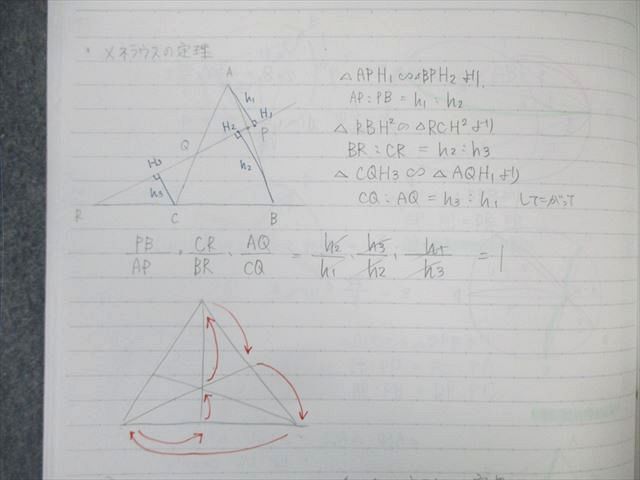 ・メネラウスの定理
A
h1
H1
H2
P
Q
h2
H3
h3
R
C
B
△APH1∽△BPH2より
AP:PB = h1:h2
△RBH2∽△RCH2より
BR:CR = h2:h3
△CQH3∽△AQH1より
CQ:AQ = h3:h1 したがって
PB/AP・CR/BR・AQ/CQ = h2/h1・h3/h2・h1/h3 = 1